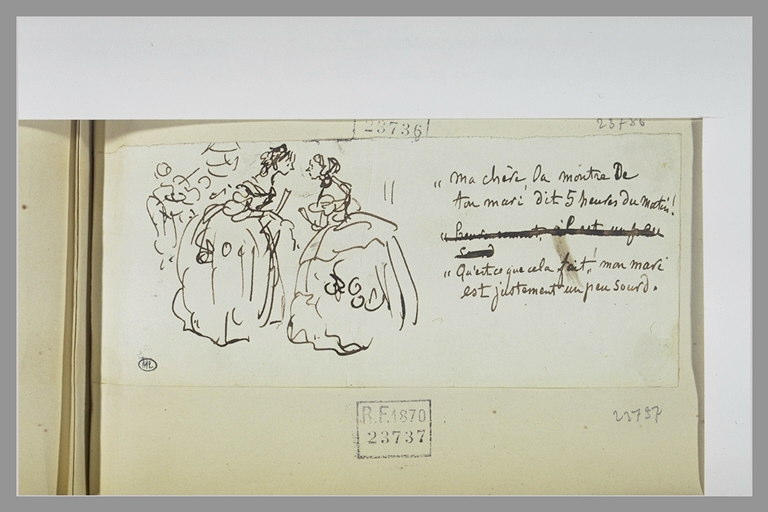 23736
23736
„ ma chère la montre De
ton mari dit 5 heures du matin!
„ heureusement, il est un peu
sourd
„ Qu'est ce que cela fait! mon mari
est justement un peu sourd.
ML
R.F. 1870
23737
23737